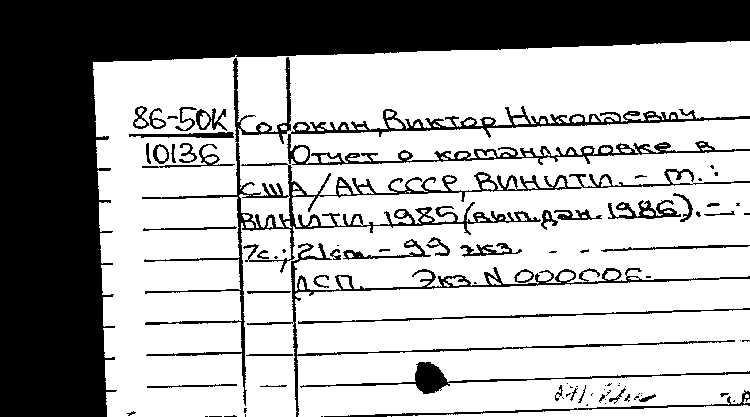 86-50К Сорокин, Виктор Николаевич.
10136 Отчет о командировке в
США/АН СССР, ВИНИТИ. - М.:
ВИНИТИ, 1985 (вып.дан. 1986). -
7с.; 21см. - 99 экз.
ДСП. Экз. N 000006.